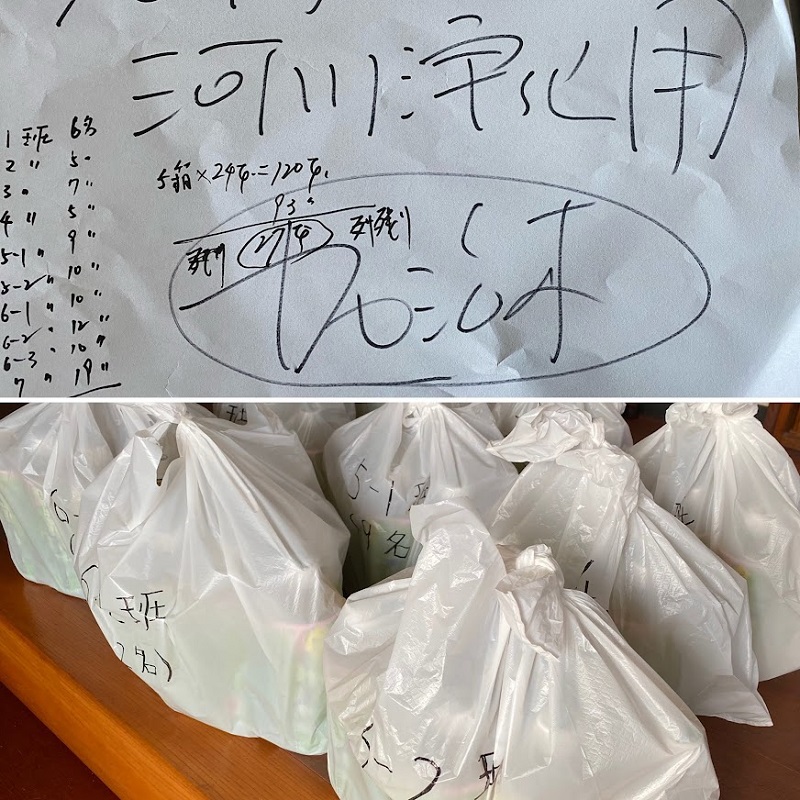 河川浄化用
1 班 6名
2 〃 5〃
3 〃 7〃
4 〃 5〃
5-1 〃 9〃
5-2 〃 10〃
6-1 〃 10〃
6-2 〃 12〃
6-3 〃 10〃
7 〃 19〃
5箱×24本=120本
93〃
残り 27本 残り
班
6-
5-1 班
(9名
班
2名)
5-2 班